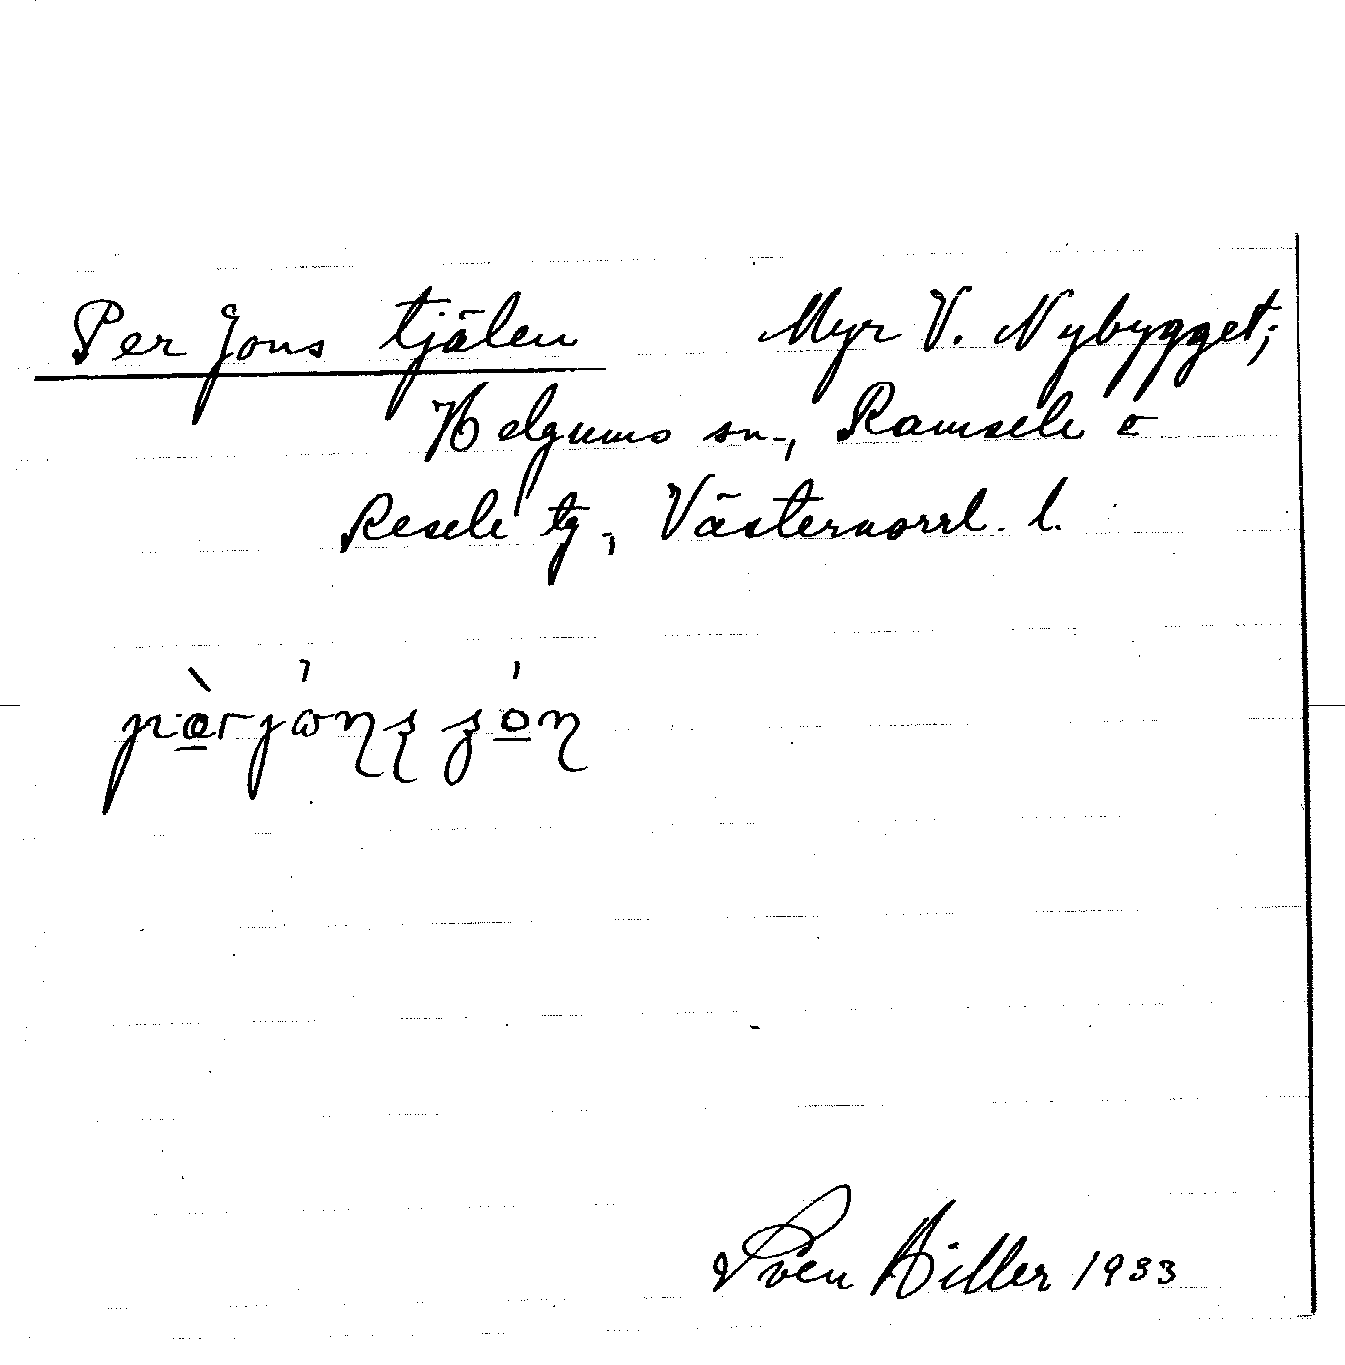 Per Jons tjälen Myr V. Nybygget;
Helgums sn., Ramsele o
Resele tg, Västernorrl. l.
Sven Hiller 1933